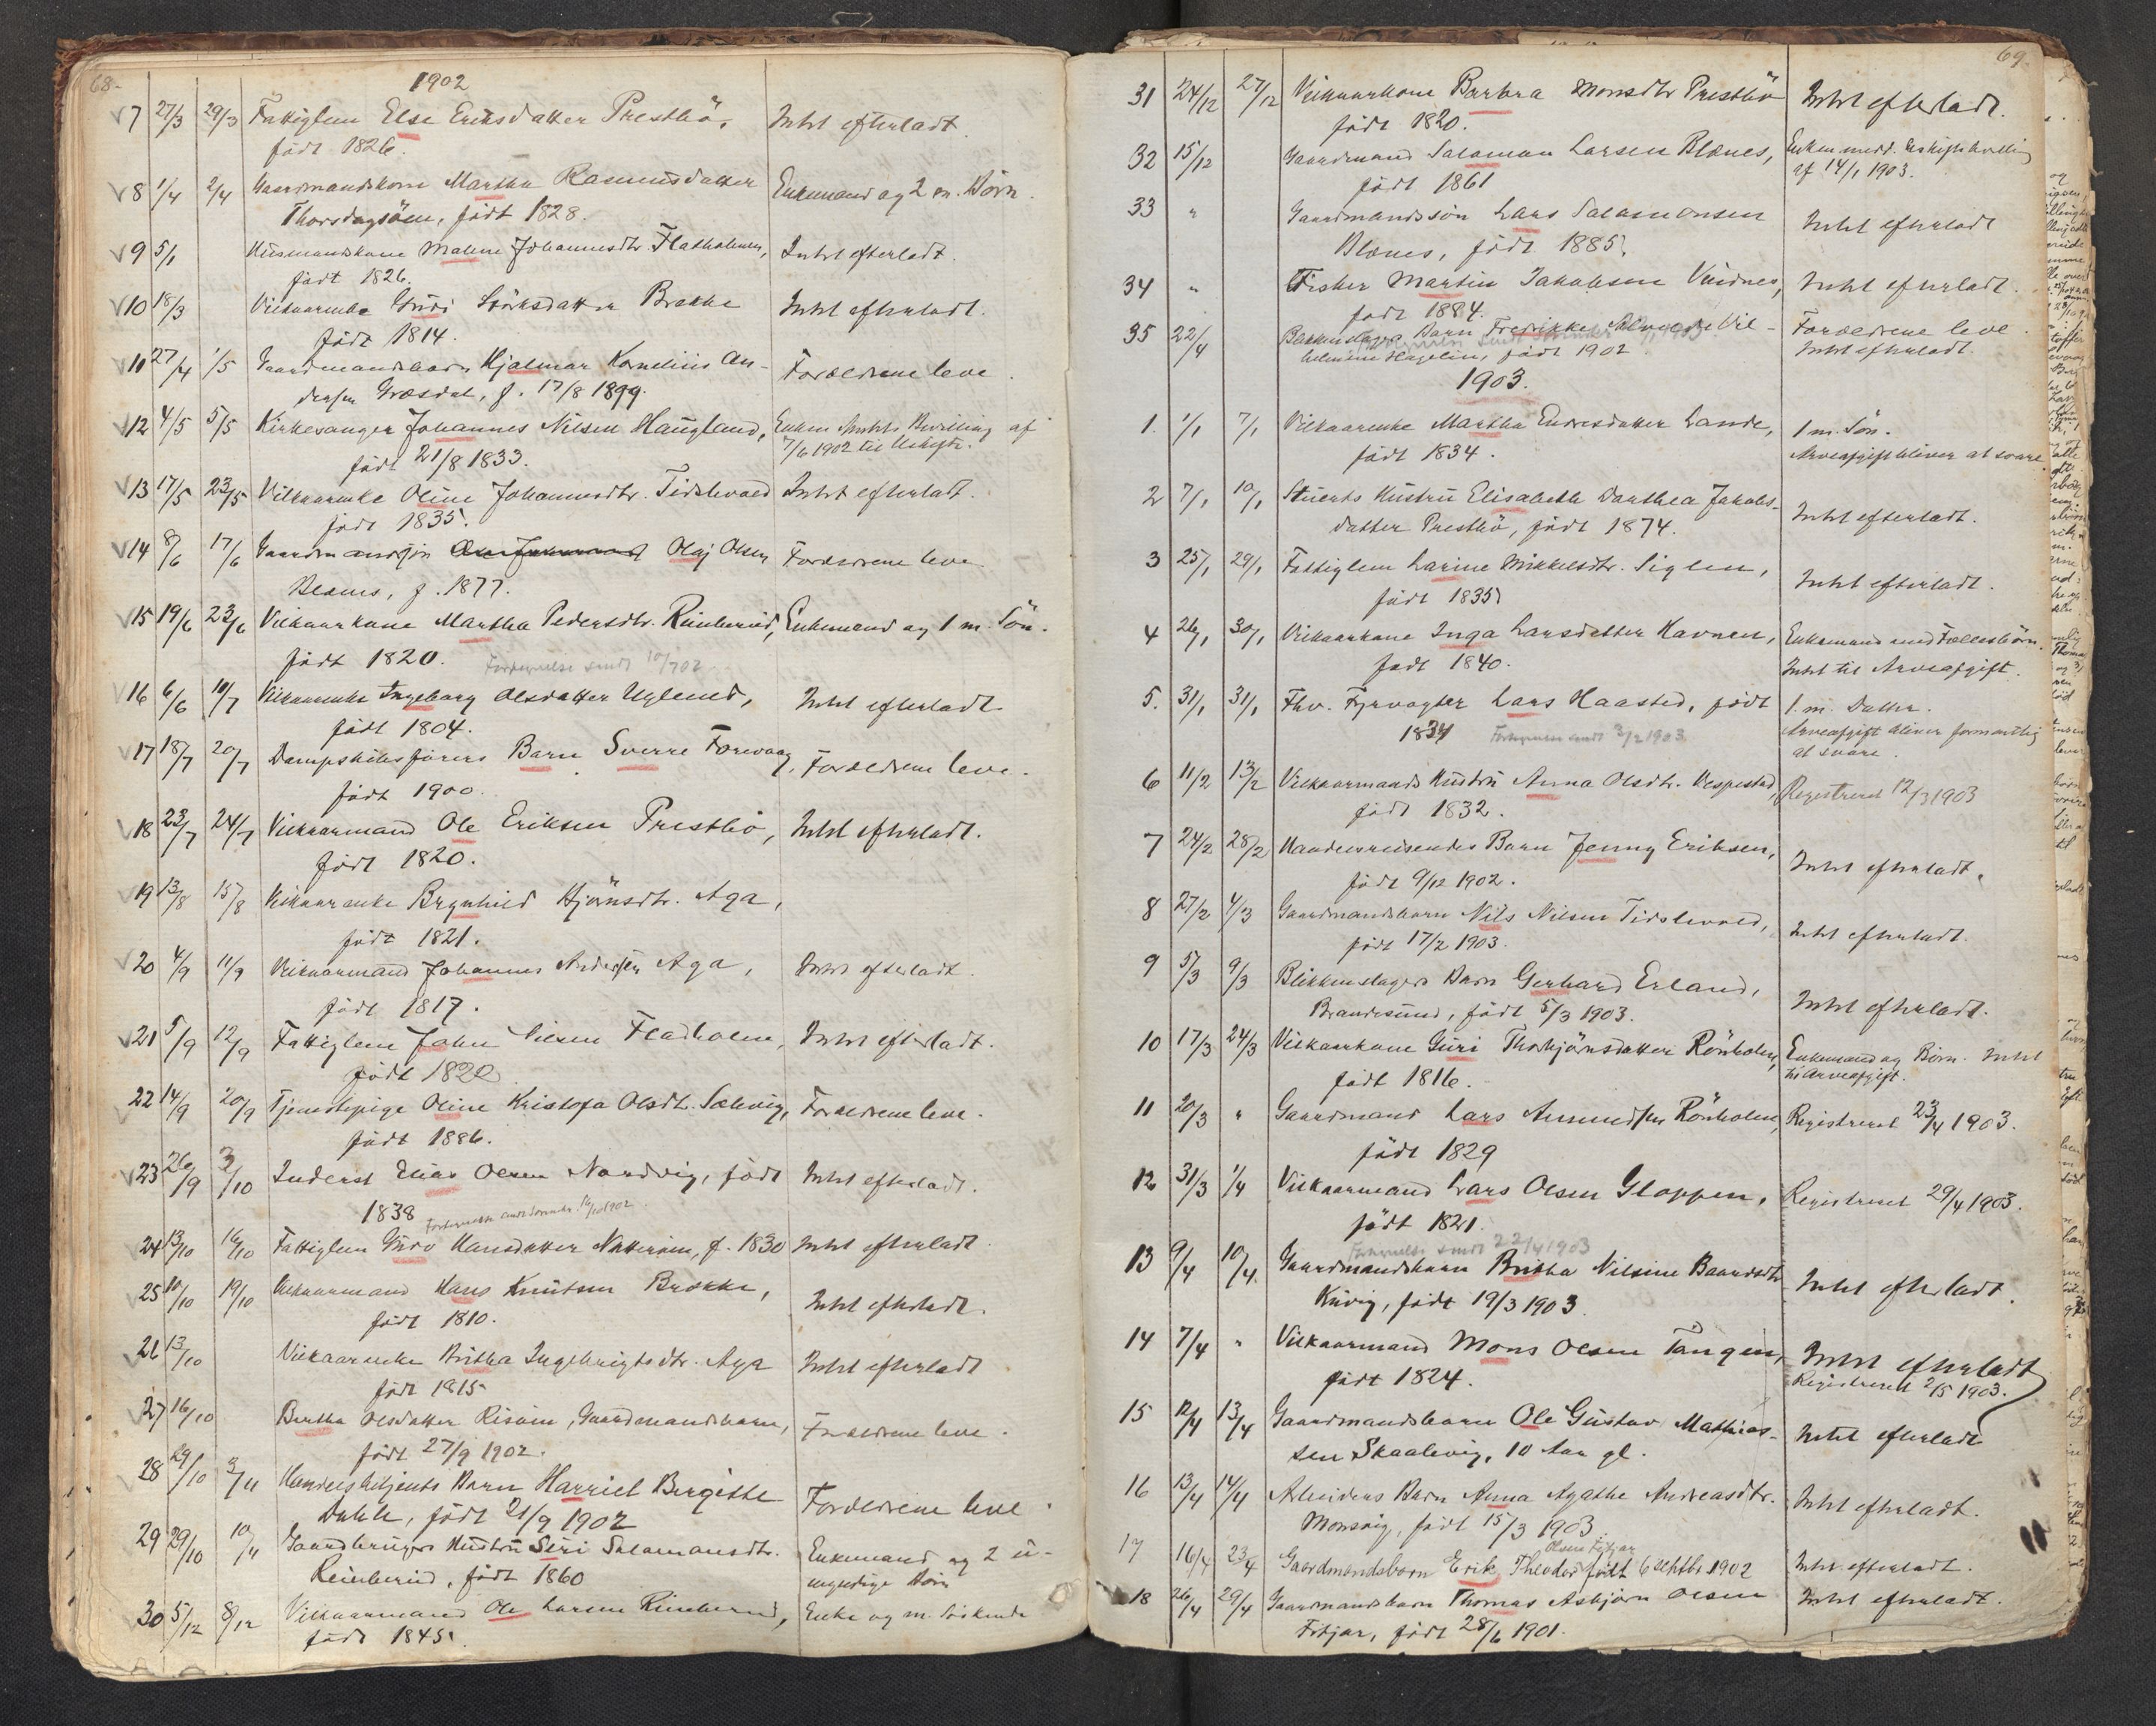 68.
1902
7 27/3 29/3 Fattiglem Else Eriksdatter Prestbö, Intet efterladt.
født 1826.
8 1/4 2/4 Gaardmandskone Martha Rasmusdatter Enkemand og 2 m. Börn.
Thorsdagsöen, født 1828.
9 5/1 Husmandskone Malene Johannesdtr. Flatholmen, Intet efterladt.
født 1826.
10 18/3 Vilkaarenke Guri Störksdatter Brekke Intet efterladt.
født 1814.
11 27/4 1/5 Gaardmandsbarn Hjalmar Kornelius An- Forældrene leve.
dersen Græsdal, f. 17/8 1899.
12 4/5 5/5 Kirkesanger Johannes Nilsen Haugland, Enken Amtets Bevilling af
født 21/8 1833. 7/6 1902 til Uskiftr.
13 17/5 23/5 Vilkaarenke Oline Johannesdtr. Tislevold Intet efterladt.
født 1835.
14 8/6 17/6 Gaardmandssøn Olaj Olsen Forældrene leve
Blænes, f. 1877.
15 19/6 23/6 Vilkaarkone Martha Pedersdtr. Rimbereid, Enkemand og 1 m. Sön.
født 1820. Fortegnelse sendt 10/7 02
16 6/6 10/7 Vilkaarenke Ingeborg Olsdatter Uglend, Intet efterladt.
født 1804.
17 18/7 20/7 Dampskibsførers Barn Sverre Forevaag, Forældrene leve.
født 1900.
18 23/7 24/7 Vilkaarmand Ole Eriksen Prestbö, Intet efterladt.
født 1820.
19 13/8 15/8 Vilkaarenke Brynhild Hjönsdtr. Aga,
født 1821.
20 4/9 11/9 Vilkaarmand Johannes Andersen Aga, Intet efterladt.
født 1817.
21 5/9 12/9 Fattiglem John Nilsen Fladholm, Intet efterladt.
født 1820
22 14/9 20/9 Tjenestepige Oline Kristofa Olsdtr. Sælevig, Forældrene leve.
født 1886.
23 26/9 3/10 Inderst Elias Olsen Nordvig, født Intet efterladt.
1838 Fortegnelse sendt 16/10 1902.
24 13/10 16/10 Fattiglem Guro Hansdatter Natterøen, f. 1830 Intet efterladt.
25 10/10 19/10 Vilkaarmand Hans Knutsen Brekke, Intet efterladt.
født 1810.
26 13/10 Vilkaarenke Britha Ingebrigtsdtr. Aga Intet efterladt
født 1815
27 16/10 Bertha Olsdatter Risöen, Gaardmandsbarn, Forældrene leve.
født 27/9 1902.
28 29/10 3/11 Handelsbetjents Barn Harriet Birgitte Forældrene leve.
Dahle, født 21/9 1902
29 29/10 10/11 Gaardbrugers Hustru Siri Salamonsdtr. Enkemand og 2 u-
Reimbereid, født 1860 myndige Börn
30 5/12 8/12 Vilkaarmand Ole Larsen Rimbereid, Enke og m. Söskende
født 1845.
69
31 24/12 27/12 Vilkaarkone Barbra Monsdtr Prestbö Intet efterladt.
født 1820.
32 15/12 Gaardmand Salamon Larsen Blænes, Enken medd. Uskiftebevilling
født 1861 af 14/1 1903.
33 " Gaardmandssön Lars Salamonsen Intet efterladt
Blænes, født 1885.
34 " Fisker Martin Jakobsen Vidnes, Intet efterladt.
født 1884.
35 22/4 Bakkenslagers Barn Fredrikke Vil- Forældrene leve.
helmine Hagelin, født 1902 Intet efterladt.
1903.
1. 1/1 7/1 Vilkaarenke Martha Endresdatter Lande, 1 m. Sön.
født 1834. Arveafgift bliver at svare.
2 7/1 10/1 Stuerts Hustru Elisabeth Dorthea Jakobs- Intet efterladt.
datter Prestbö, født 1874.
3 25/1 29/1 Fattiglem Larine Mikkelsdtr. Siglen, Intet efterladt.
født 1835
4 26/1 30/1 Vilkaarkone Inga Larsdatter Havnen, Enkemand med Fællesbörn.
født 1840. Intet til Arveafgift.
5. 31/1 31/1 Fhv. Fyrvogter Lars Haasted, født 1 m. Datter.
1834 Fortegnelse sendt 3/2 1903 Arveafgift bliver formentlig
at svare.
6 11/2 13/2 Vilkaarmands Hustru Anna Olsdtr. Vespestad, Registreret 12/3 1903
født 1832.
7 24/2 28/2 Handelsreisendes Barn Jenny Eriksen, Intet efterladt.
født 9/12 1902.
8 27/2 4/3 Gaardmandsbarn Nils Nilsen Tislevold, Intet efterladt.
født 17/2 1903.
9 5/3 9/3 Blikkenslagers Barn Gerhard Erland, Intet efterladt.
Brandesund, født 5/3 1903.
10 17/3 24/3 Vilkaarkone Guri Thorbjörnsdatter Rönholm, Enkemand og Börn. Intet
født 1816. til Arveafgift.
11 20/3 " Gaardmand Lars Amundsen Rönholm, Registreret 23/4 1903.
født 1829
12 31/3 1/4 Vilkaarmand Lars Olsen Gloppen, Registreret 29/4 1903.
født 1821.
Fortegnelse sendt 22/4 1903
13 9/4 10/4. Gaardmandsbarn Britha Nilsine Baardsdtr Intet efterladt.
Kuvig, født 19/3 1903.
14 7/4 " Vilkaarmand Mons Olsen Tangen, Intet efterladt
født 1824. Registreret 2/5 1903.
15 12/4 13/4 Gaardmandsbarn Ole Gustav Mathias- Intet efterladt
sen Skaalevig, 10 Aar gl.
16 13/4 14/4 Arbeiders Barn Anna Agathe Andreasdtr. Intet efterladt.
Monsvig, født 15/3 1903.
Olsen Fitjar
17 16/4 23/4 Gaardmandsbarn Erik Theodor født 6 septbr 1902 Intet efterladt.
18 26/4 29/4 Gaardmandsbarn Thomas Asbjørn Olsen Intet efterladt.
Fitjar, født 28/6 1901.